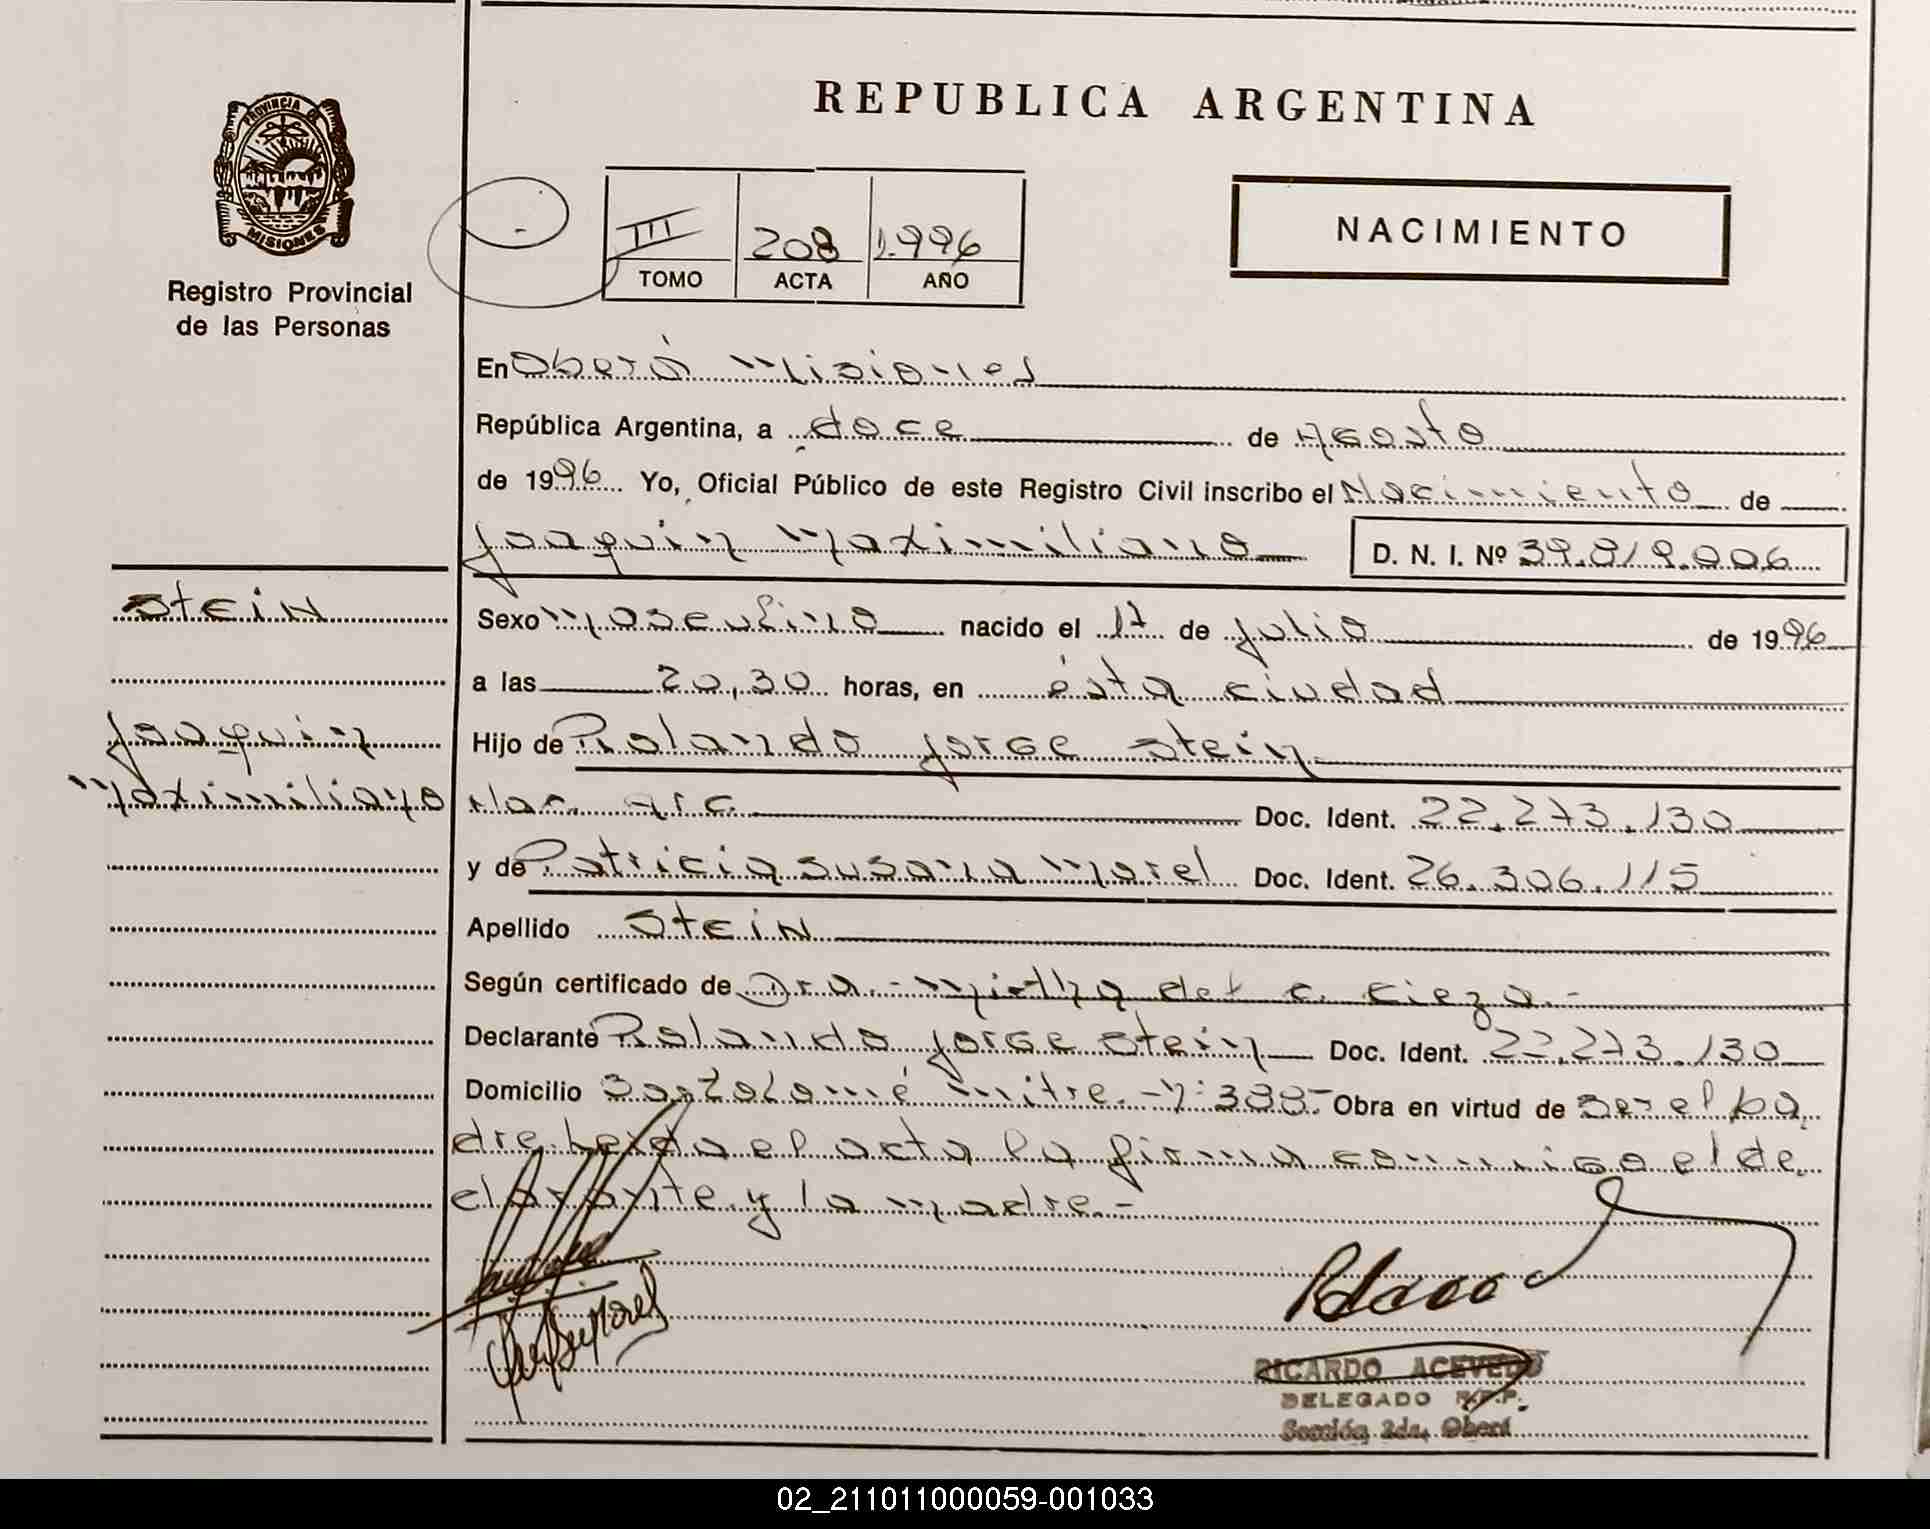 REPUBLICA ARGENTINA
PROVINCIA DE
MISIONES
Registro Provincial
de las Personas
III 208 1.996
TOMO ACTA AÑO
NACIMIENTO
En Oberá Misiones
República Argentina, a doce de Agosto
de 1996 Yo, Oficial Público de este Registro Civil inscribo el Nacimiento de
Joaquin Maximiliano D. N. I. Nº 39.819.006
Stein
Joaquin
Maximiliano
Sexo Masculino nacido el 17 de Julio de 1996
a las 20,30 horas, en ésta ciudad
Hijo de Rolando Jorge Stein
Nac. Arg. Doc. Ident. 22.273.130
y de Patricia Susana Morel Doc. Ident. 26.306.115
Apellido Stein
Según certificado de Dra.- Mirtha del C. Cieza.-
Declarante Rolando Jorge Stein Doc. Ident. 22.273.130
Domicilio Bartolomé Mitre.-Nº: 388- Obra en virtud de Ser el pa
dre. Leida el acta la firma conmigo el de
clarante y la madre.-
Morel
RICARDO ACEVEDO
DELEGADO R.P.P.
Sección 2da. Oberá
02_211011000059-001033